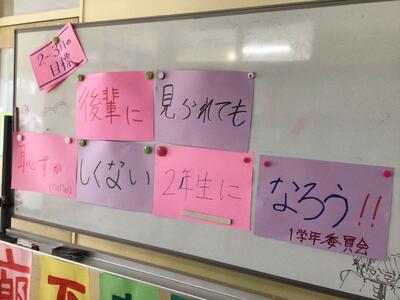 2~3月の
目標
後輩に
見られても
恥ずか
しくない
2年生に
なろう!!
1学年委員会